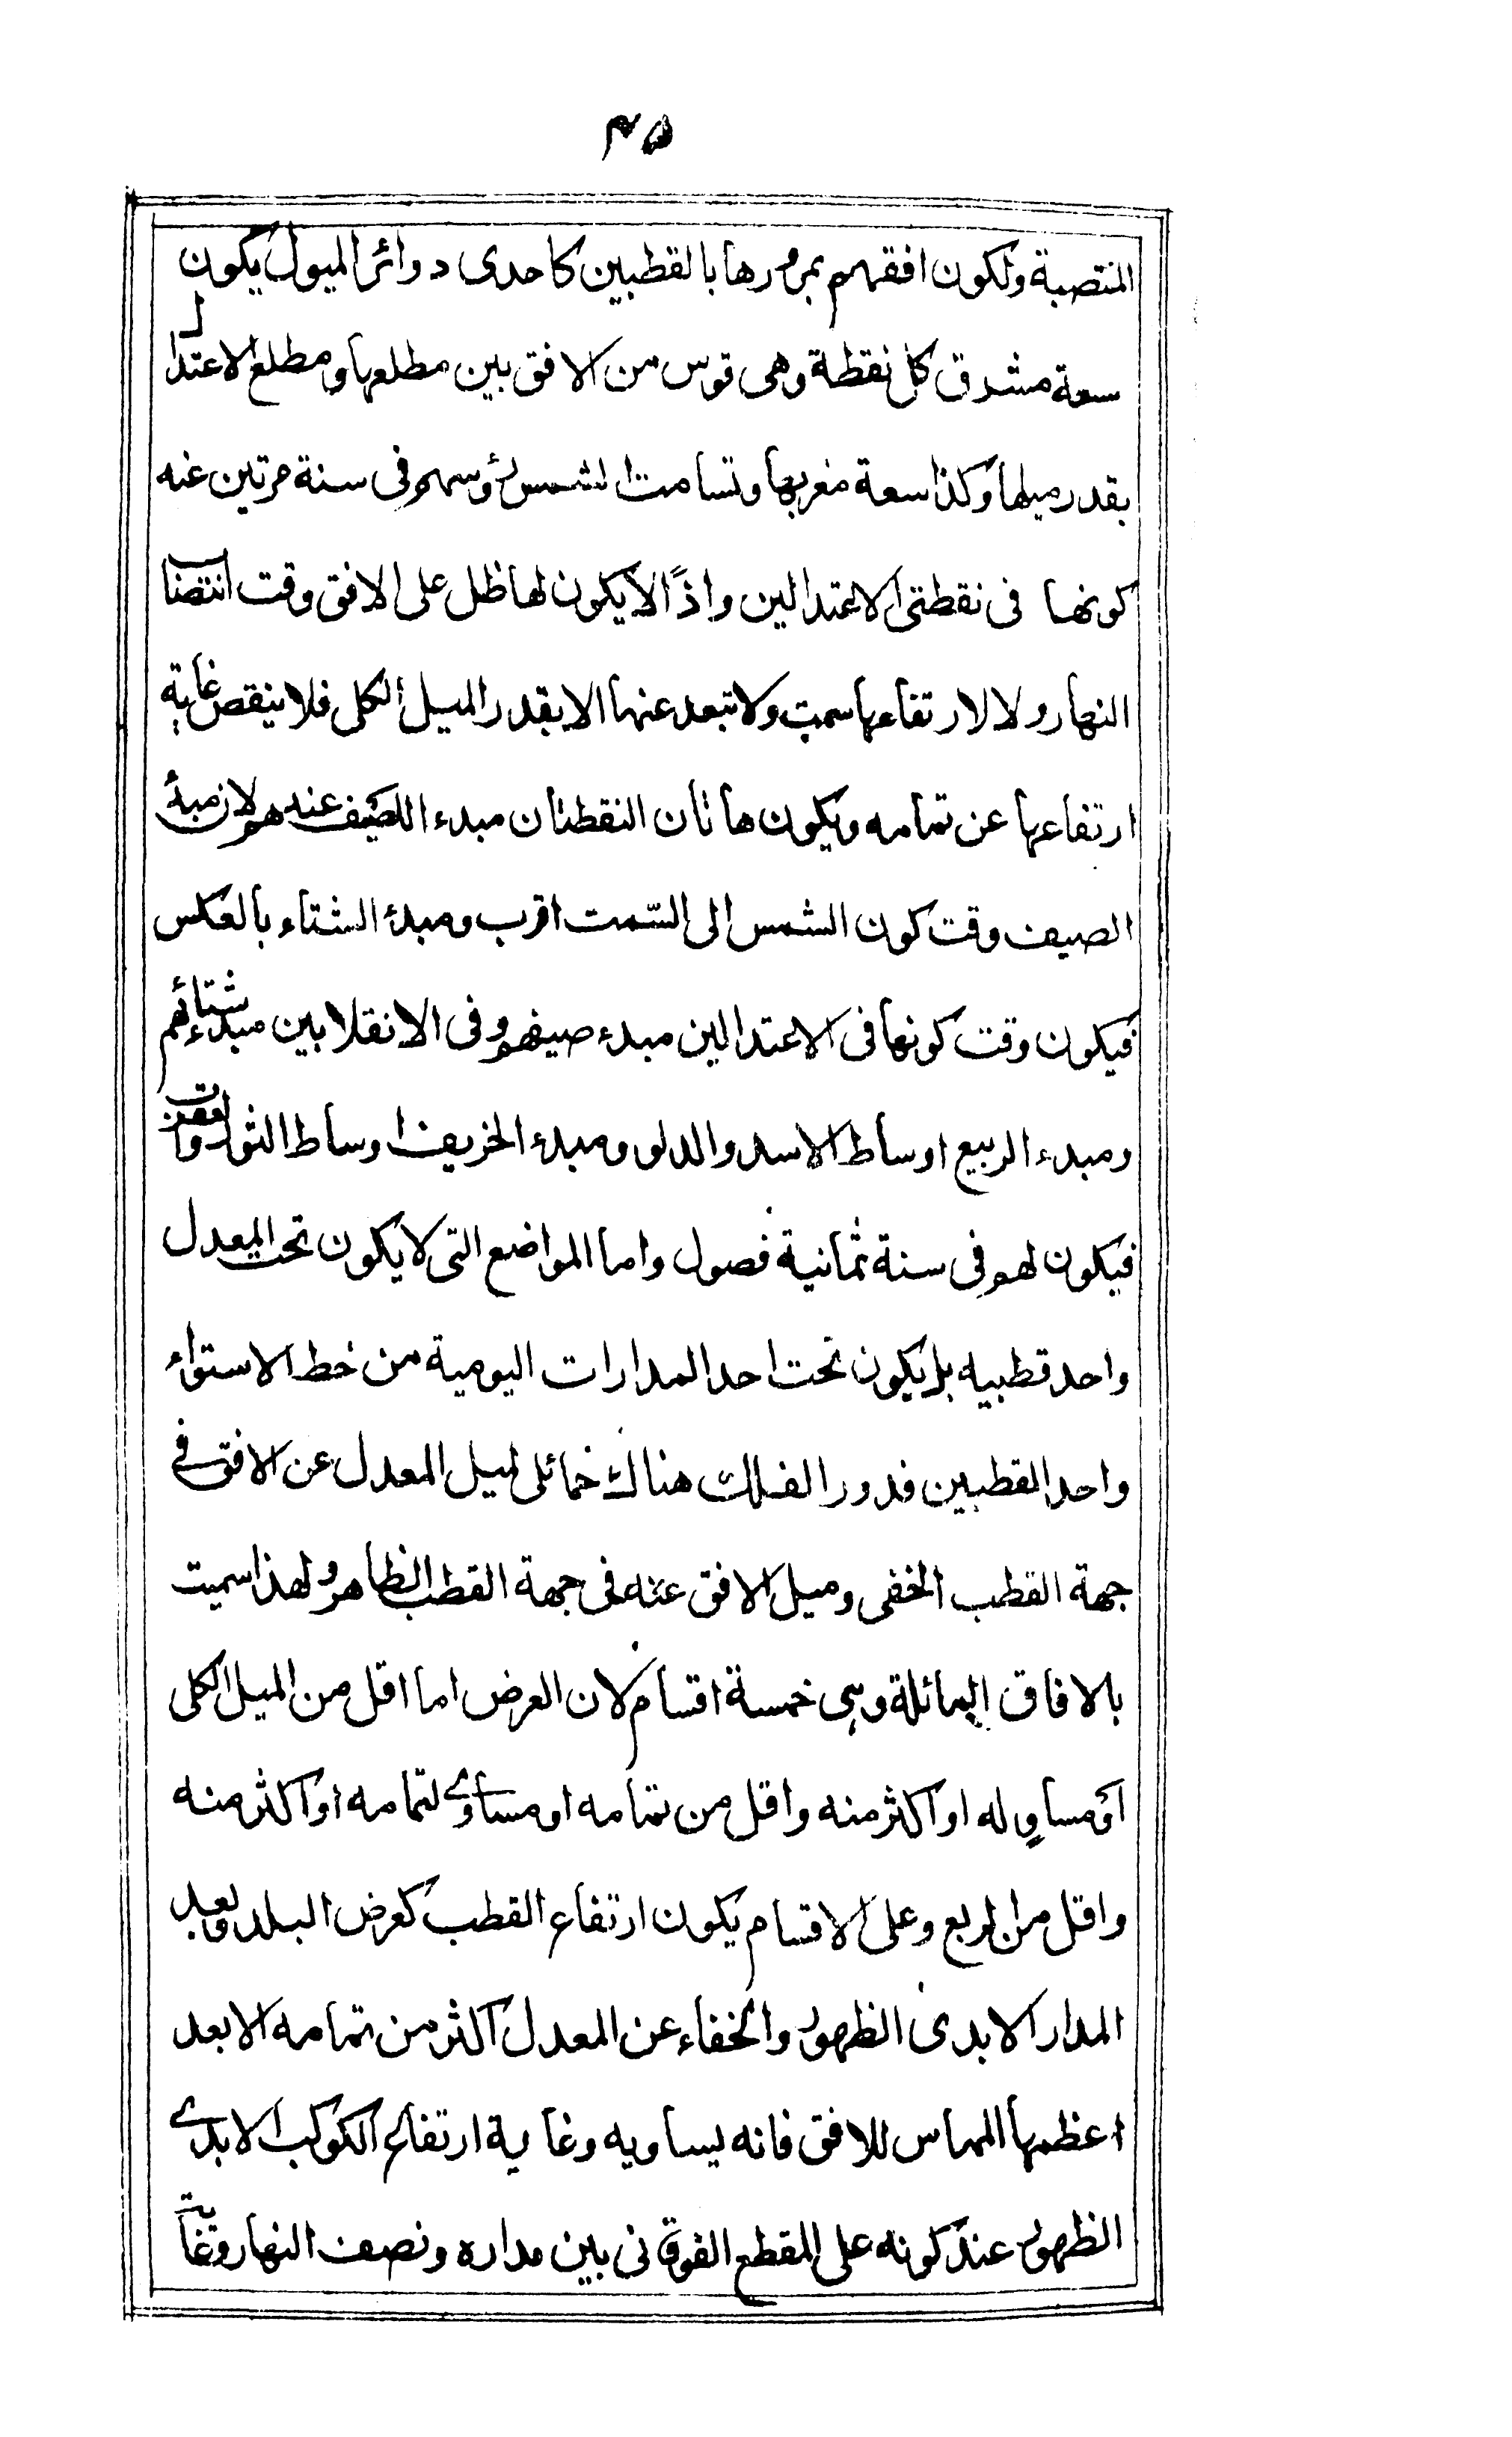 ٢٥
المنتصبة ولكون افقهم بمرورها بالقطبين كاحدى دوائر الميول يكون
سعة مشرق كل نقطة وهى قوس من الافق بين مطلعها ومطلع الاعتدال
بقدر ميلها وكذا سعة مغربها وتسامت الشمس رؤسهم فى سنة مرتين عنه
كونها فى نقطتى الاعتدالين واذًا لا يكون لها ظل على الافق وقت انتصاف
النهار ولا لارتفاعها سمت ولا تبعد عنها الا بقدر الميل الكلى فلا ينقص غاية
ارتفاعها عن تمامه ويكون هاتان النقطتان مبدء الصيف عندهم لان مبدأ
الصيف وقت كون الشمس الى السّمت اقرب ومبدء الشتاء بالعكس
فيكون وقت كونها فى الاعتدالين مبدء صيفهم وفى الانقلابين مبدء شتائهم
ومبدء الربيع اوساط الاسد والدلو ومبدء الخريف اوساط الثور والعقرب
فيكون لهم فى سنة ثمانية فصول واما المواضع التى لا يكون تحت المعدل
واحد قطبيه بل يكون تحت احد المدارات اليومية من خط الاستواء
واحد القطبين فدور الفلك هناك حمائلى لميل المعدل عن الافق فى
جهة القطب الخفى وميل الافق عنه فى جهة القطب الظاهر ولهذا سميت
بالافاق المائلة وهى خمسة اقسام لان العرض اما اقل من الميل الكلى
او مساوٍ له او اكثر منه واقل من تمامه او مساوى لتمامه او اكثر منه
واقل من الربع وعلى الاقسام يكون ارتفاع القطب كعرض البلد وبعد
المدار الابدى الظهور والخفاء عن المعدل اكثر من تمامه الا بعد
اعظمها المماس للافق فانه يساويه وغاية ارتفاع الكوكب الابدى
الظهور عند كونه على المقطع الفوقانى بين مداره ونصف النهار وغاية